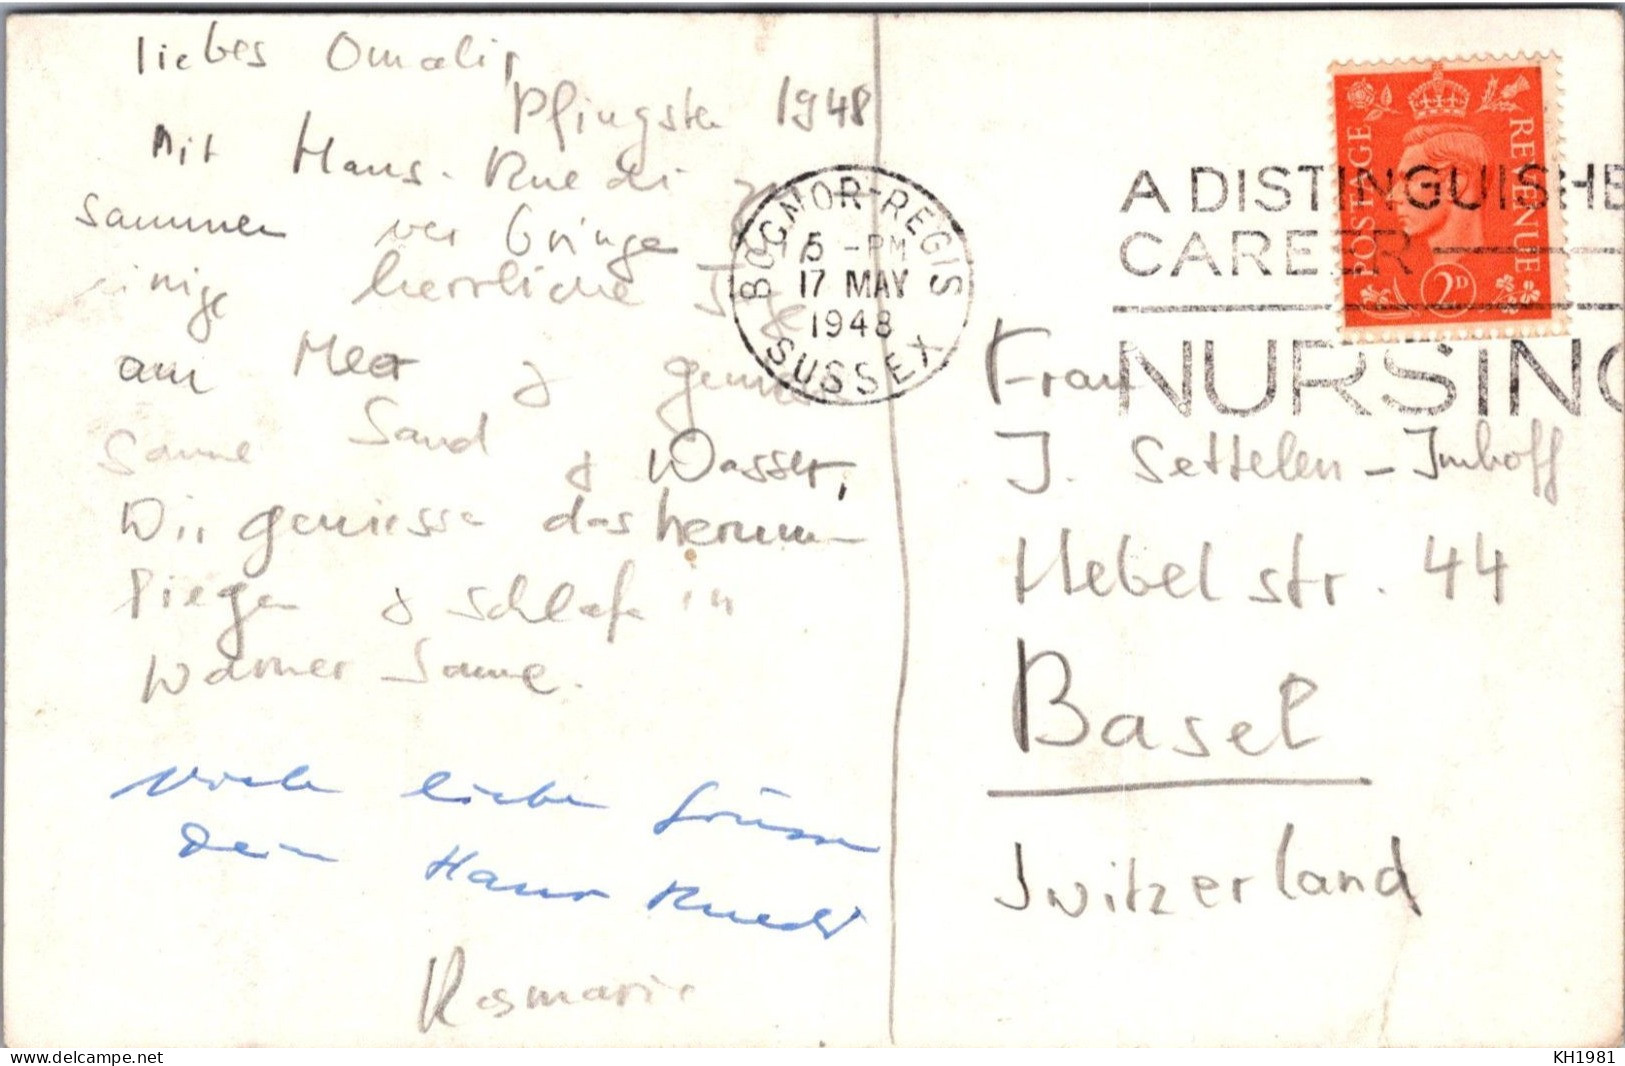 liebes Omali,
Pfingsten 1948
Mit Hans-Ruedi zu
sammen verbringen
einige herrliche Tage
am Meer &
Sonne Sand & Wasser,
Wir geniessen das herum-
liegen & schlafen in
warmer Sonne.
Viele liebe Grüsse
Dein Hans Ruedi
Rosmarie
BOGNOR-REGIS
5 - PM
17 MAY
1948
SUSSEX
A DISTINGUISHE
CAREER
NURSING
POSTAGE
REVENUE
2D
Frau
J. Settelen-Imhoff
Hebelstr. 44
Basel
Switzerland
KH1981
www.delcampe.net